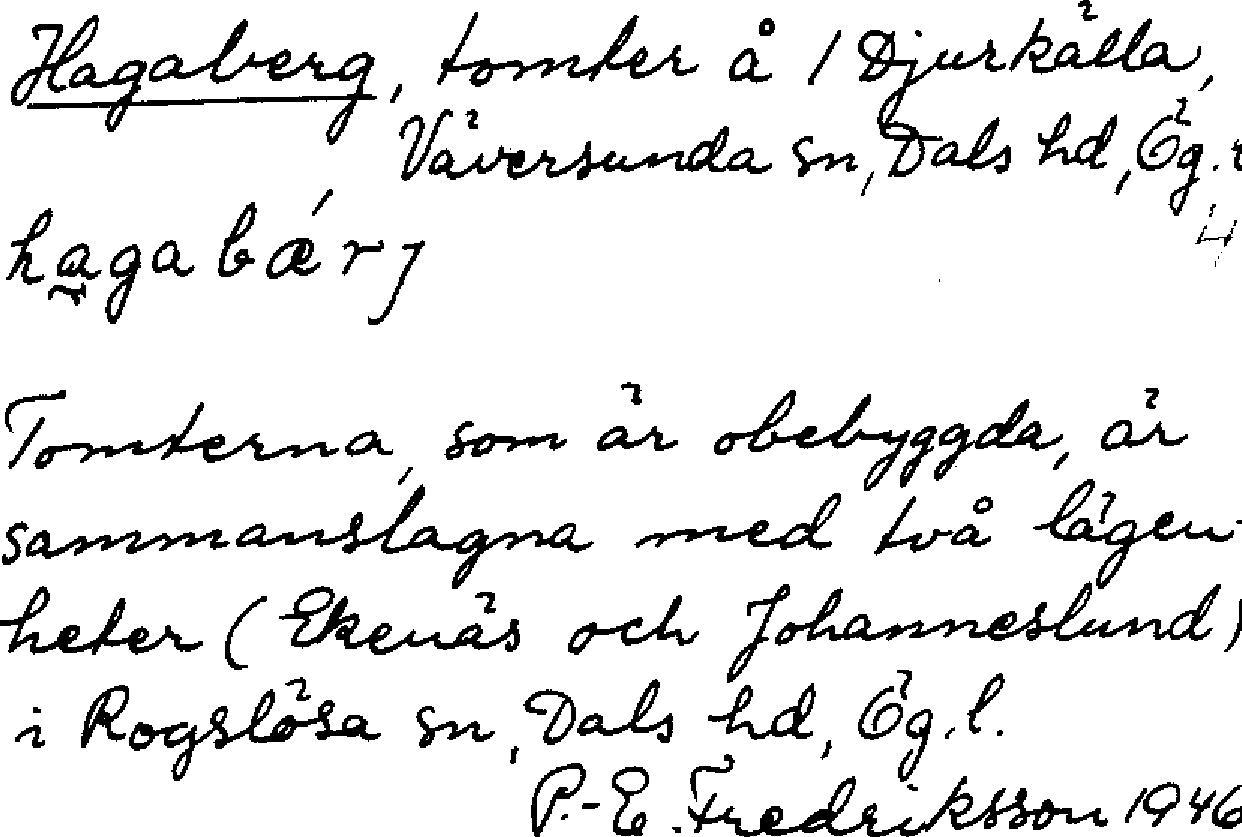 Hagaberg, tomter å / Djurkälla,
Väversunda sn, Dals hd, Ög.
hagabǽrj
Tomterna, som är obebyggda, är
sammanslagna med två lägen-
heter (Ekenäs och Johanneslund)
i Rogslösa sn, Dals hd, Ög.l.
P.-E. Fredriksson 1946